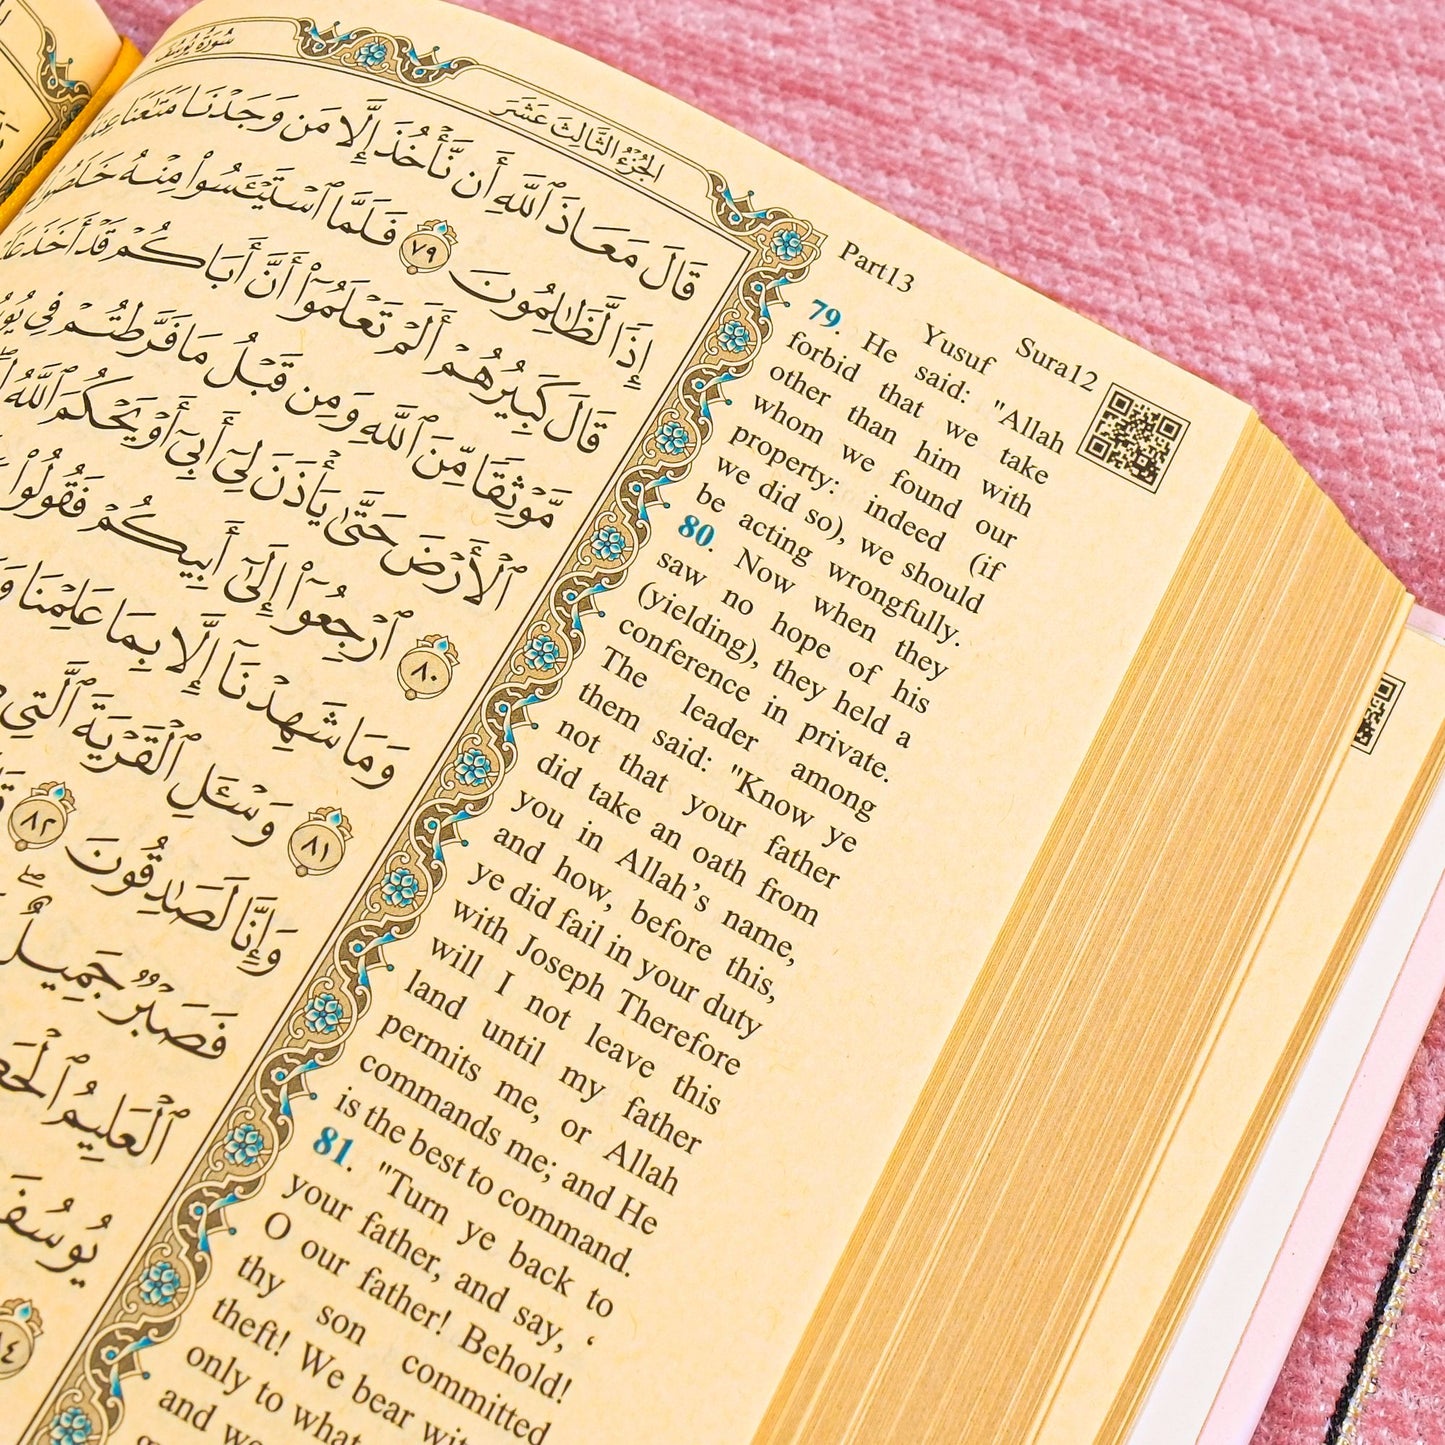 سُورَةُ يُوسُفَ
الجُزْءُ الثَّالِثَ عَشَرَ
قَالَ مَعَاذَ ٱللَّهِ أَن نَّأْخُذَ إِلَّا مَن وَجَدْنَا مَتَٰعَنَا
إِذًا لَّظَٰلِمُونَ ٧٩ فَلَمَّا ٱسْتَيْـَٔسُوا۟ مِنْهُ
قَالَ كَبِيرُهُمْ أَلَمْ تَعْلَمُوٓا۟ أَنَّ أَبَاكُمْ قَدْ أَخَذَ
مَّوْثِقًا مِّنَ ٱللَّهِ وَمِن قَبْلُ مَا فَرَّطتُمْ فِى
ٱلْأَرْضَ حَتَّىٰ يَأْذَنَ لِىٓ أَبِىٓ أَوْ يَحْكُمَ ٱللَّهُ
ٱرْجِعُوٓا۟ إِلَىٰٓ أَبِيكُمْ فَقُولُوا۟ ٨٠
وَمَا شَهِدْنَآ إِلَّا بِمَا عَلِمْنَا
وَسْـَٔلِ ٱلْقَرْيَةَ ٱلَّتِى ٨١
وَإِنَّا لَصَٰدِقُونَ ٨٢
فَصَبْرٌ جَمِيلٌ
ٱلْعَلِيمُ
يُوسُفَ
Part13 Yusuf Sura12
79. He said: "Allah
forbid that we take
other than him with
whom we found our
property: indeed (if
we did so), we should
be acting wrongfully.
80. Now when they
saw no hope of his
(yielding), they held a
conference in private.
The leader among
them said: "Know ye
not that your father
did take an oath from
you in Allah’s name,
and how, before this,
ye did fail in your duty
with Joseph Therefore
will I not leave this
land until my father
permits me, or Allah
commands me; and He
is the best to command.
81. "Turn ye back to
your father, and say, ‘
O our father! Behold!
thy son committed
theft! We bear
only to what
and